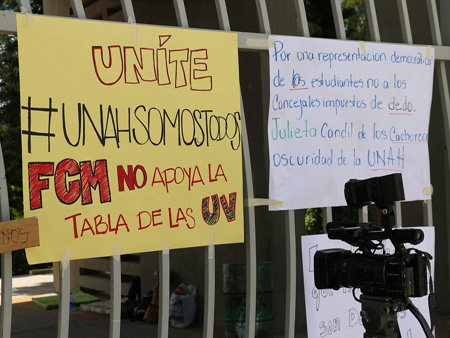 UNÍTE
#UNAHSOMOSTODOS
FCM NO APOYA LA
TABLA DE LAS UV
Por una representación democrática
de los estudiantes no a los
Concejales impuestos de dedo.
Julieta Candil de los Cachureco
oscuridad de la UNAH
NOS